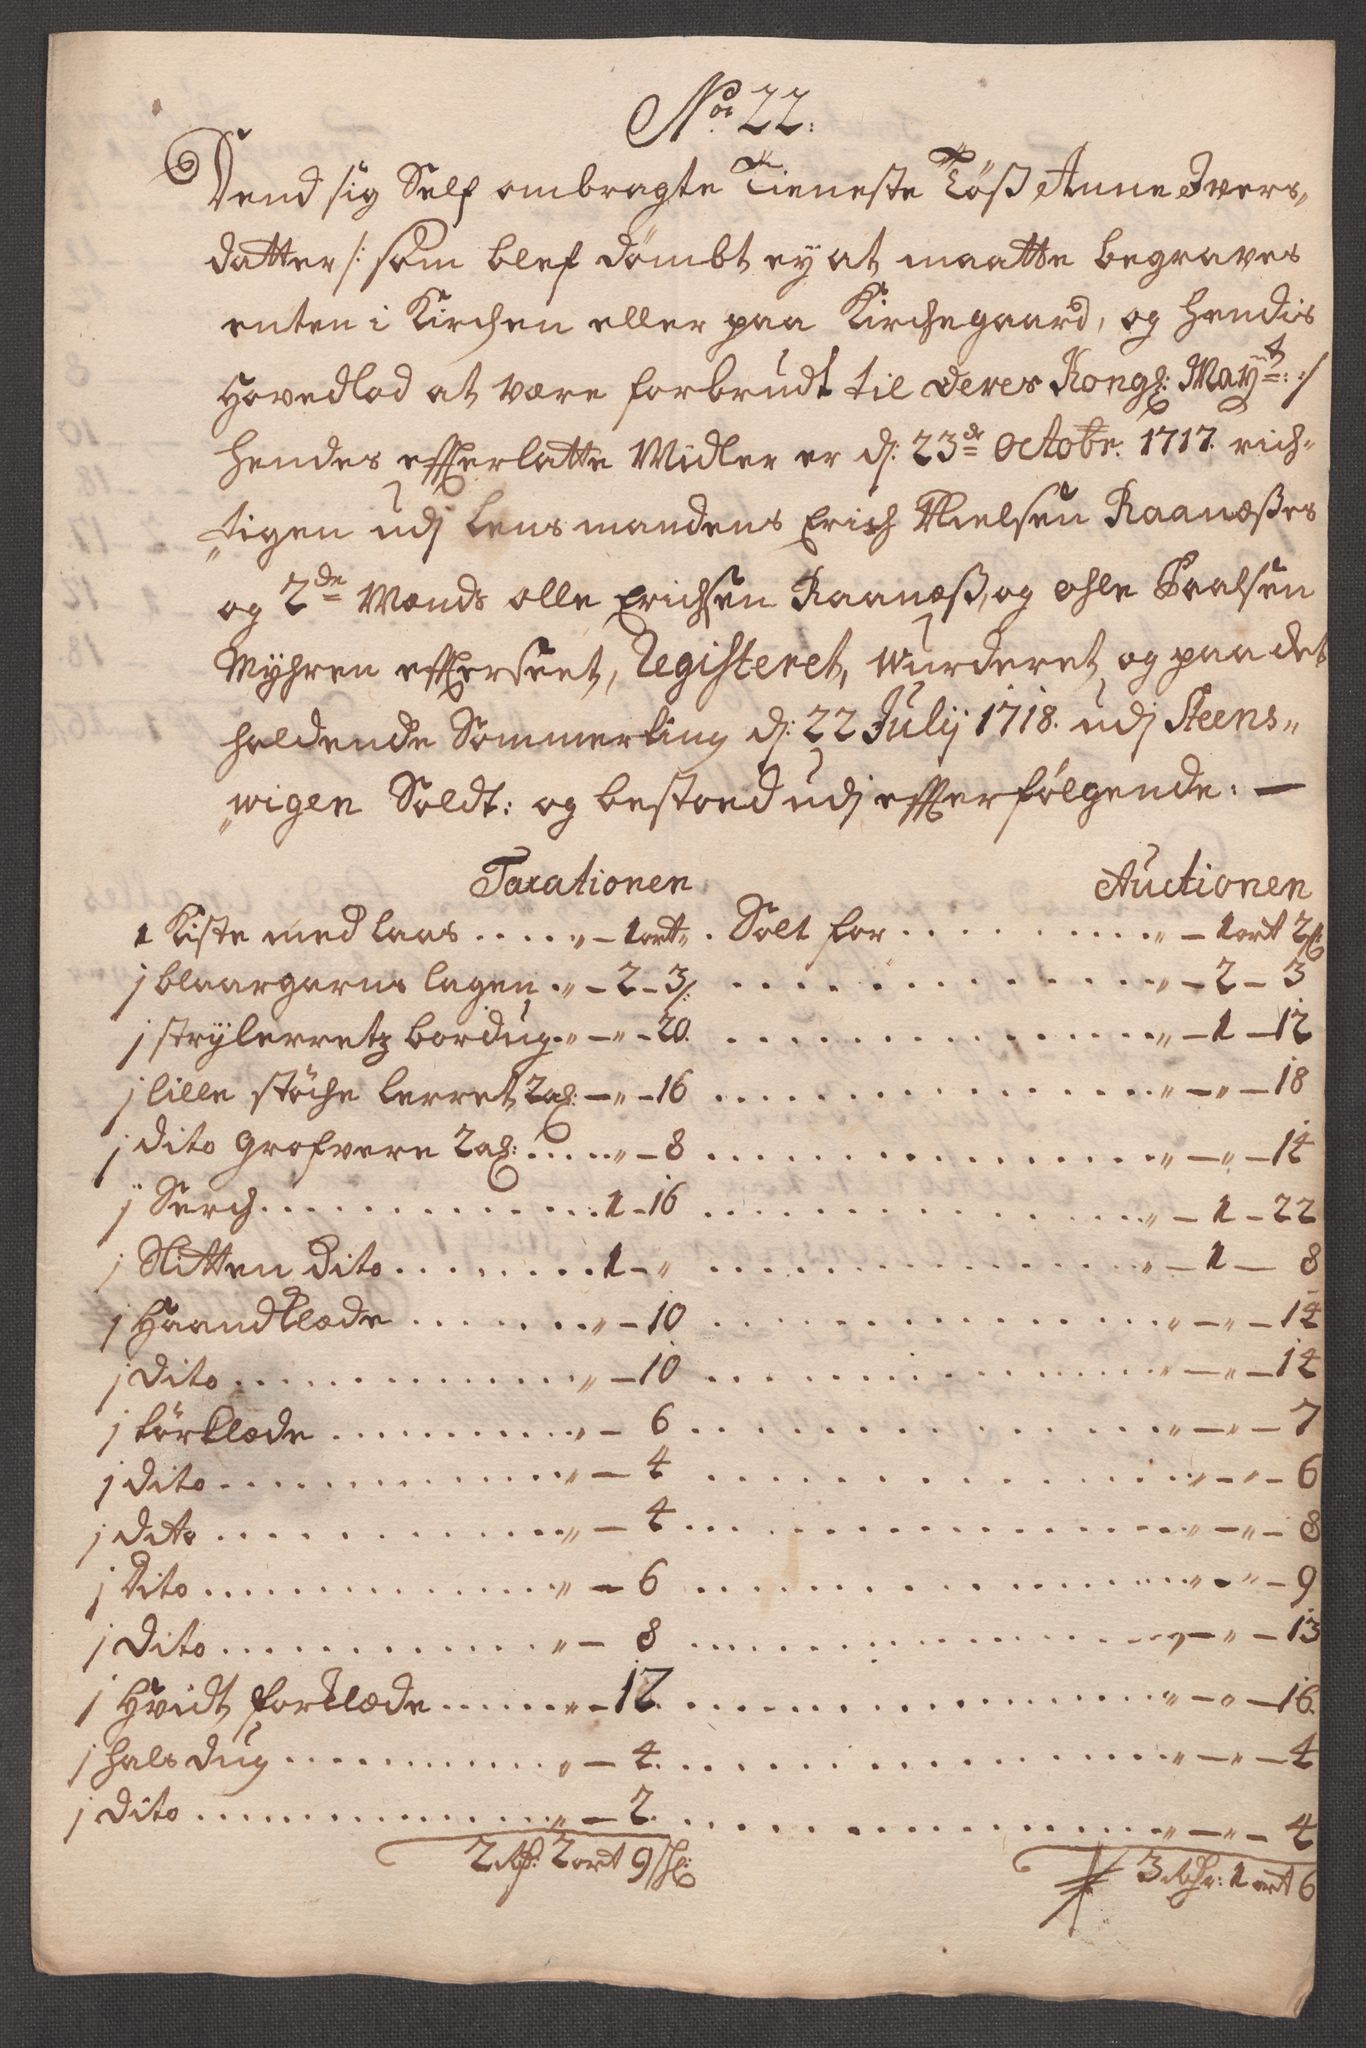 No. 22.
Dend sig Self ombragte Tieneste Töß Anne Ivers„
datter /: som blef dömbt ey at maatte begraves
enten i Kirchen eller paa Kirchegaard, og hendis
Hovedlod at være forbrudt til Deres Kongl: Mayt: :/
hendes effterlatte Midler er d: 23de Octobr. 1717. rich„
„tigen udj Lensmandens Erich Nielsen Raanæßes
og 2de Mænds olle Erichsen Raanæß, og ohle Paalsen
Myhren effterseet, Registeret, wurderet og paa det
holdende Sommerting d: 22 Julij 1718. udj Steens„
„wigen Soldt: og bestoed udj effterfölgende. —
Taxationen Auctionen
1 Kiste med laas .... „ – 1 ort „ . Solt for ........ „ – 1 ort 2 ß
j blaargarns lagen . „ – 2 – 3 /: ........ „ – 2 – 3
j strÿlerretz bordug . „ – „ – 20. ........ „ – 1 – 12
j lille stöche lerret 2 al: – „ – 16 ........ „ – „ – 18
j dito grofvere 2 al: .... „ – 8 ........ „ – „ – 14
j Serch ........ 1 – 16 ........ „ – 1 – 22
j Slitten dito ........ 1 – „ ........ „ – 1 – 8
j Haandklæde ........ „ – 10 ........ „ – „ – 14
j dito ........ „ – 10 ........ „ – „ – 14
j törklæde ........ „ – 6 ........ „ – „ – 7
j dito ........ „ – 4 ........ „ – „ – 6
j dito ........ „ – 4 ........ „ – „ – 8
j Dito ........ „ – 6 ........ „ – „ – 9
j Dito ........ „ – 8 ........ „ – „ – 13
j Hvidt forklæde ...... „ – 12 ........ „ – „ – 16.
j hals dug ........ „ – 4 ........ „ – „ – 4
j Dito ........ „ – 2 ........ „ – „ – 4
2 Rd: 2 ort 9 ß: 3 Rdr: 1 ort 6